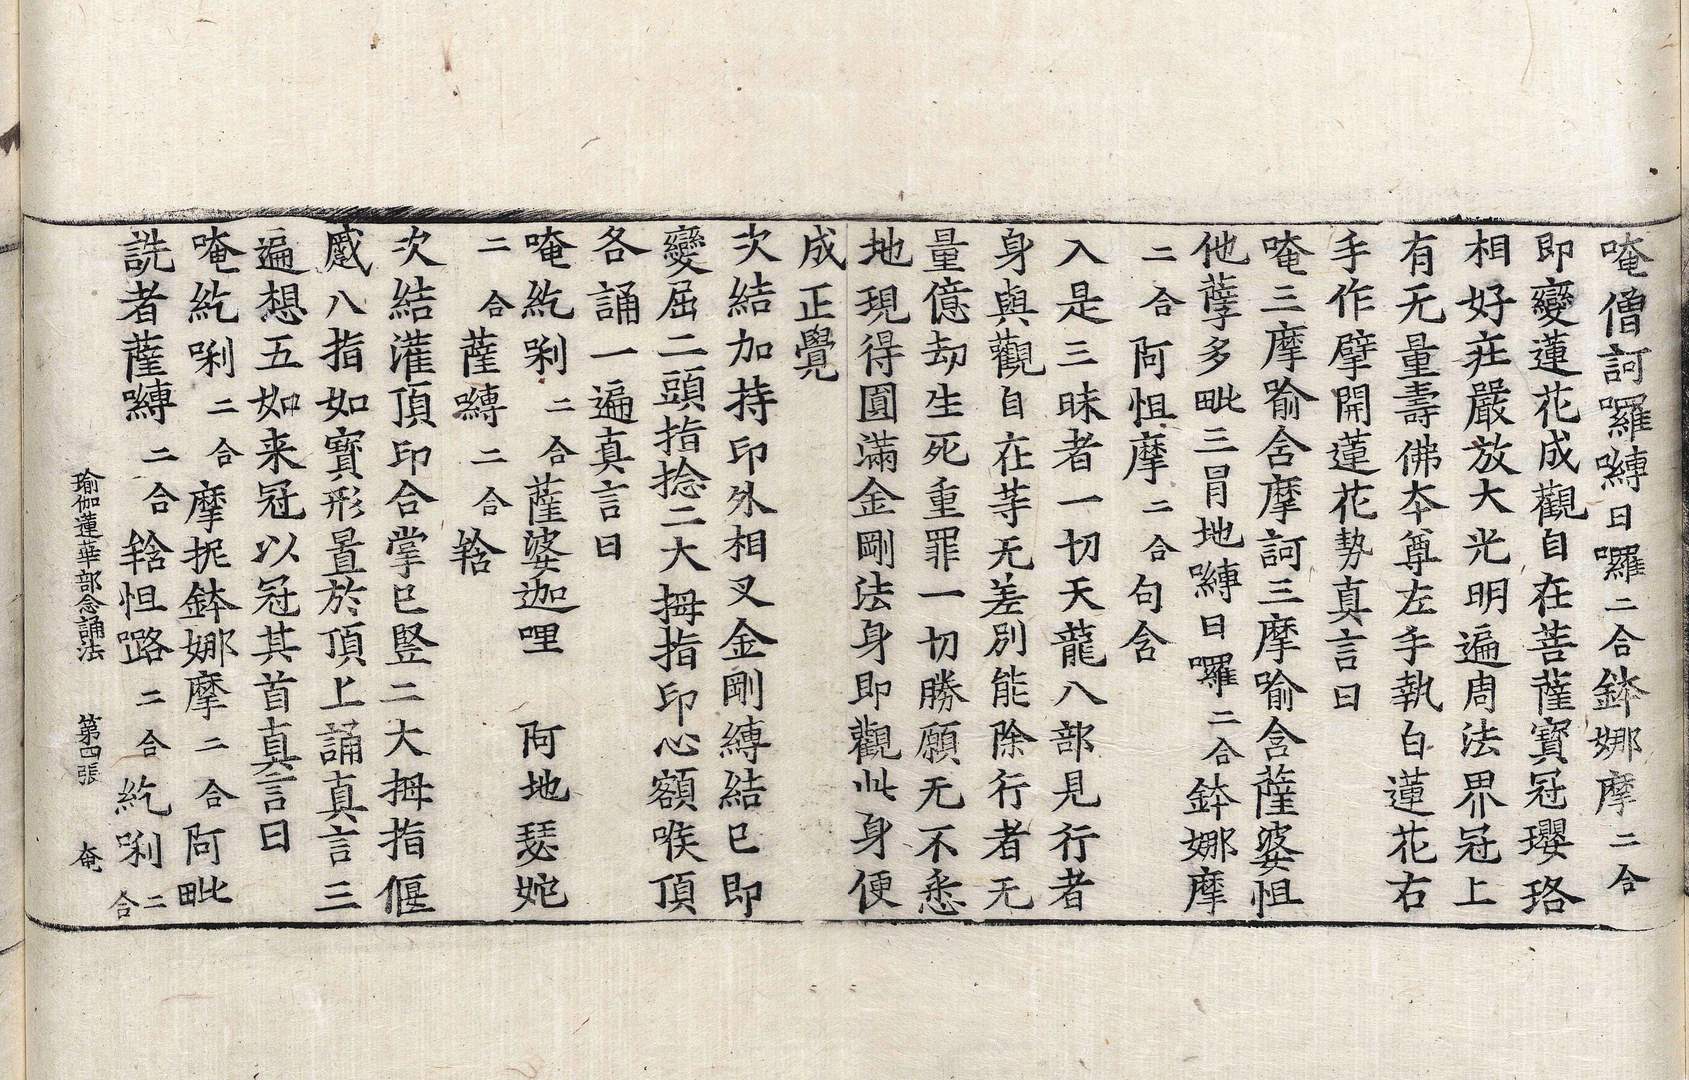 唵僧訶囉嚩日囉二合鉢娜摩二合
即變蓮花成觀自在菩薩寶冠瓔珞
相好莊嚴放大光明遍周法界冠上
有无量壽佛夲尊左手執白蓮花右
手作擘開蓮花勢真言曰
唵三摩喻舍摩訶三摩喻含薩婆怛
他孽多毗三冐地嚩日囉二合鉢娜摩
二合阿怛摩二合句含
入是三昧者一切天龍八部見行者
身與觀自在䓁无差別能除行者无
量億劫生死重罪一切勝願无不悉
地現得圓滿金剛法身即觀此身便
成正覺
次結加持印外相叉金剛縛結已即
變屈二頭指捻二大拇指印心額喉頂
各誦一遍真言曰
唵紇唎二合薩婆迦哩 阿地瑟姹
二合薩嚩二合𤚥
次結灌頂印合掌已竪二大拇指偃
蹙八指如寶形置於頂上誦真言三
遍想五如来冠以冠其首真言曰
唵紇唎二合摩抳鉢娜摩二合阿毗
詵者薩嚩二合𤚥怛𡀔二合紇唎二合
瑜伽蓮華部念誦法 第四張 奄